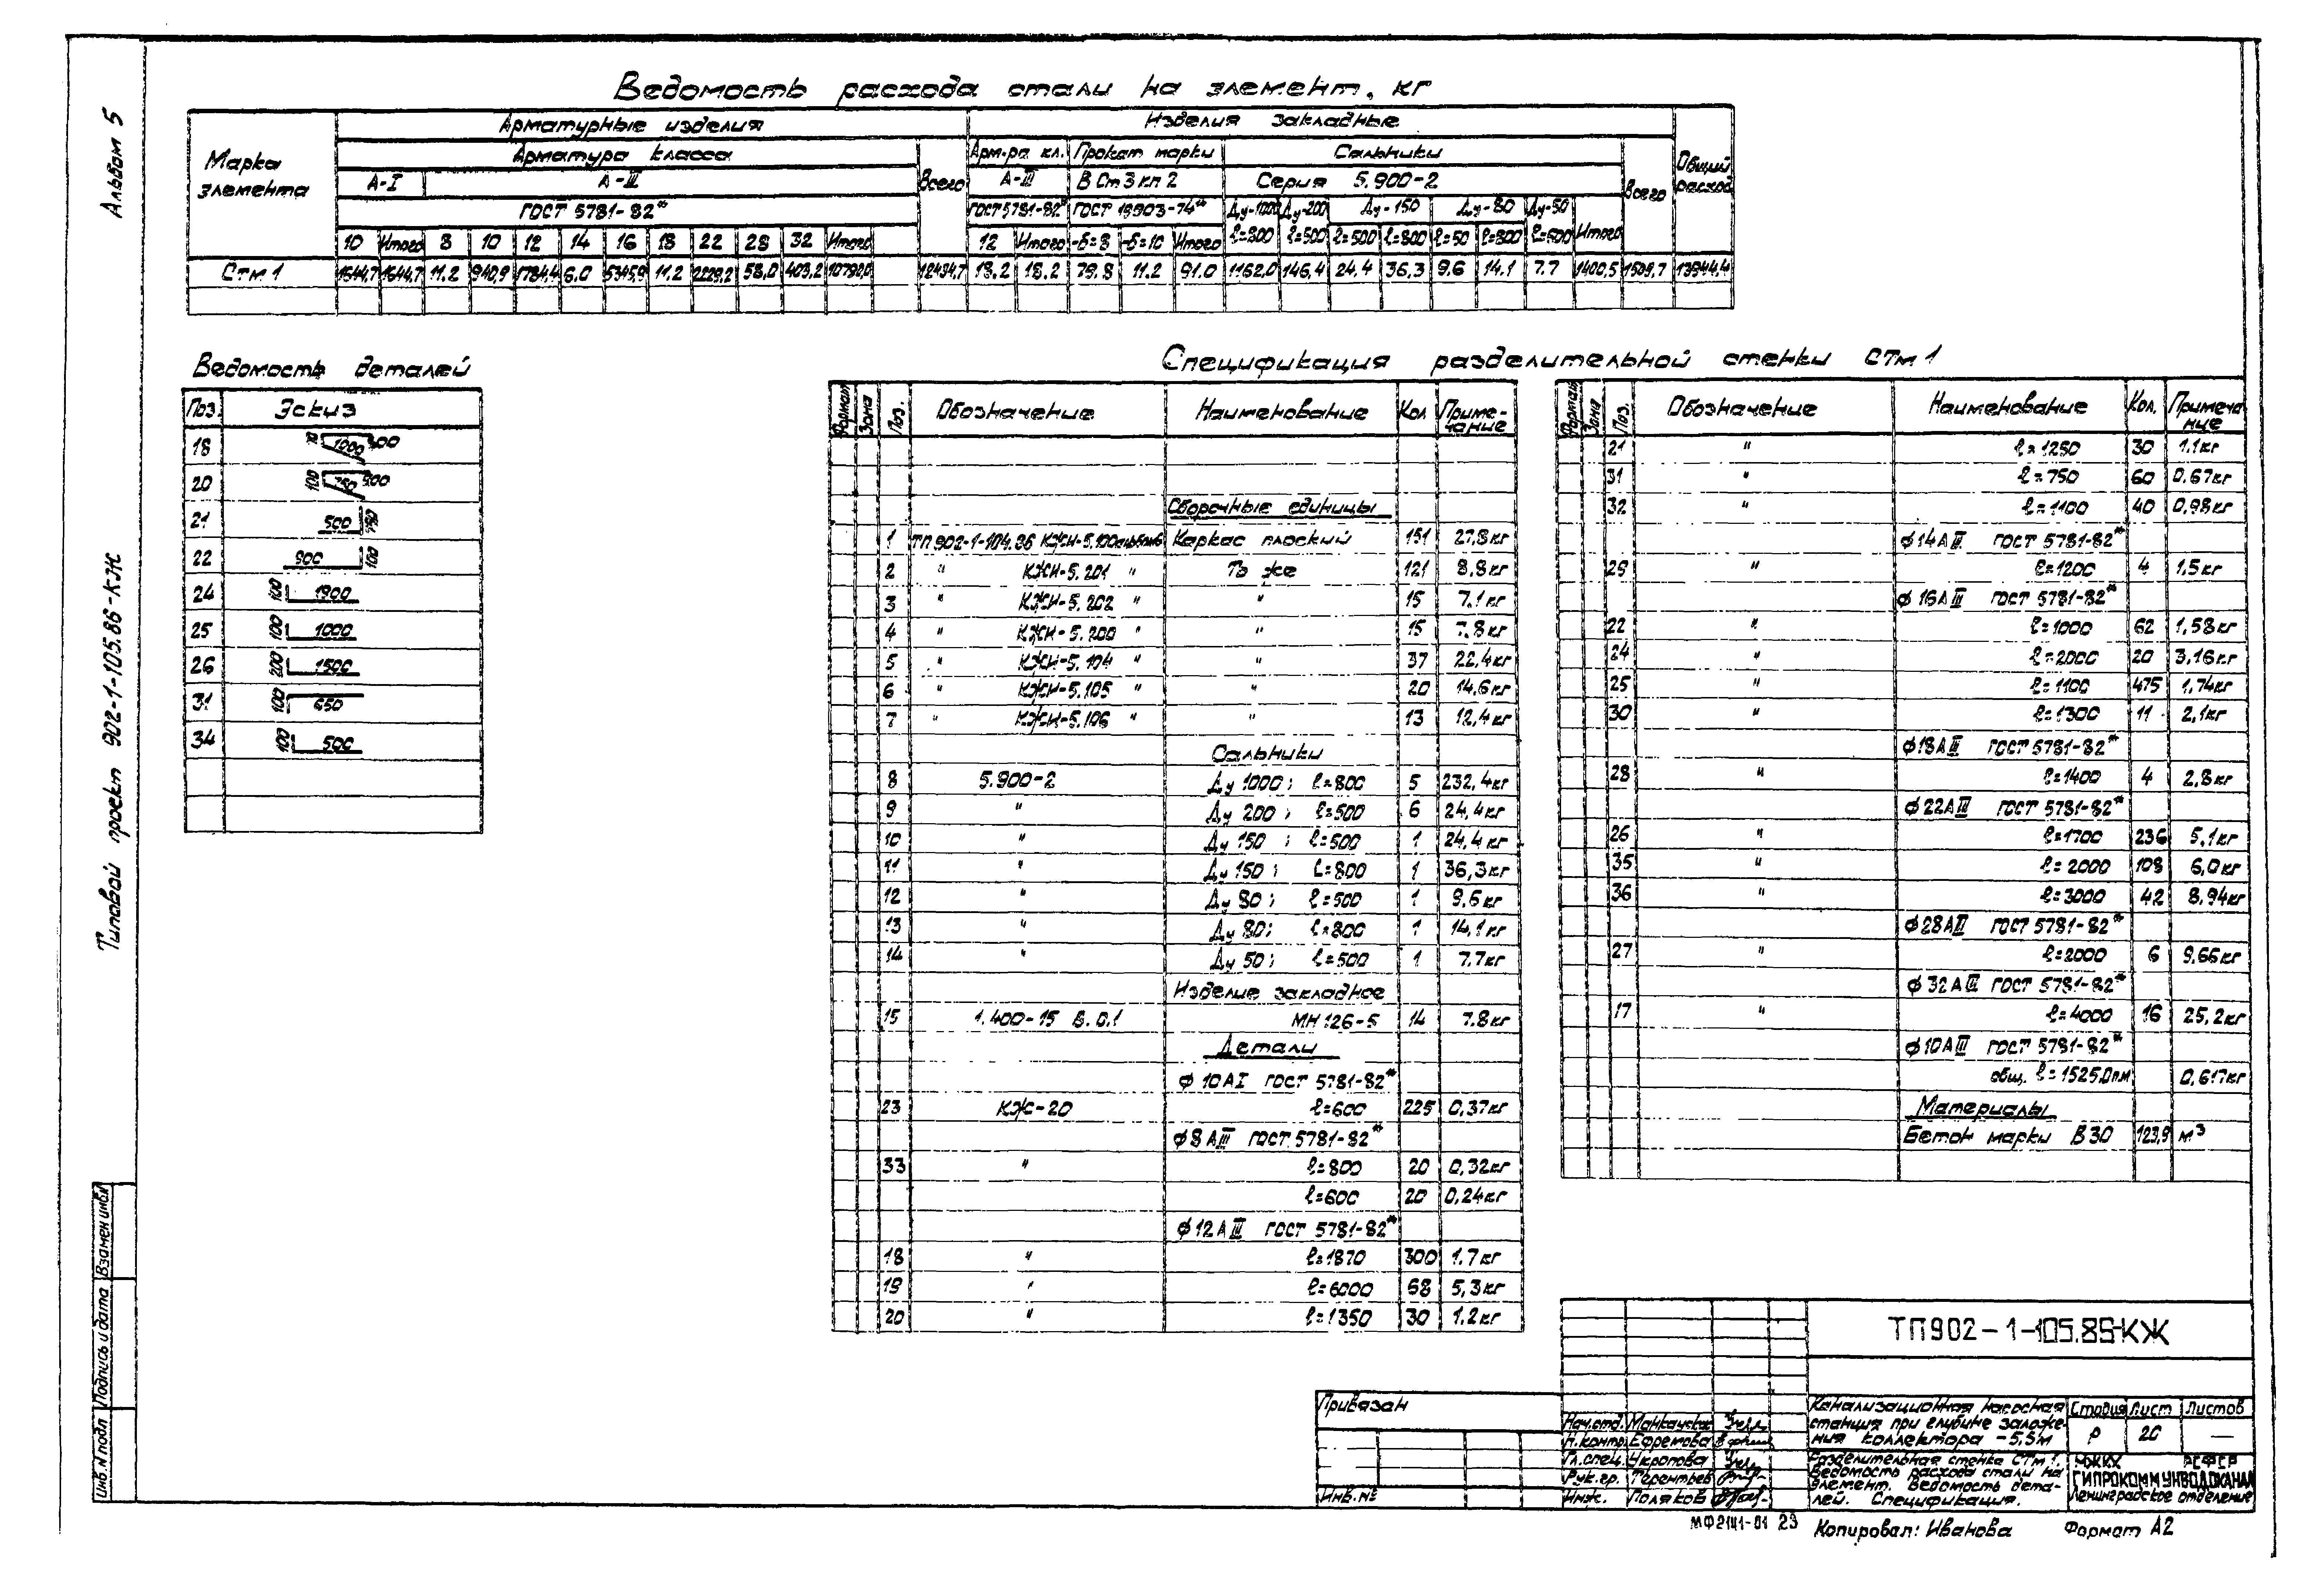 Альбом 5
Типовой проект 902-1-105.86-КЖ
Инв.N подл. Подпись и дата Взамен инв.
Ведомость расхода стали на элемент, кг
Марка элемента
Арматурные изделия
Изделия закладные
Общий расход
Арматура класса
Всего
Арм-ра кл.
Прокат марки
Сальники
Всего
А-I
А-III
А-III
В Ст3 кп 2
Серия 5.900-2
ГОСТ 5781-82*
ГОСТ 5781-82*
ГОСТ 19903-74*
Ду-1000 Ду-200 Ду-150 Ду-80 Ду-50
10 Итого 8 10 12 14 16 18 22 28 32 Итого 12 Итого -δ=8 -δ=10 Итого ℓ=800 ℓ=500 ℓ=500 ℓ=800 ℓ=50 ℓ=800 ℓ=500 Итого
Стм 1 1644,7 1644,7 11.2 940,9 1784,4 6.0 5345,9 11.2 2229,2 58,0 403,2 10792,0 12434,7 18,2 18.2 79.8 11.2 91.0 1162,0 146,4 24.4 36,3 9.6 14.1 7.7 1400,5 1509,7 13944,4
Ведомость деталей
Поз. Эскиз
18 1000
20 100 750
21 500
22 900 100
24 100 1900
25 100 1000
26 200 1500
31 100 650
34 100 500
Спецификация разделительной стенки СТм 1
Формат Зона Поз. Обозначение Наименование Кол. Приме-
чание
Сборочные единицы
1 ТП 902-1-104.86 КЖИ-5.100 альбом6 Каркас плоский 151 27,8 кг
2 " КЖИ-5.201 " То же 121 8,8 кг
3 " КЖИ-5.202 " " 15 7.1 кг
4 " КЖИ-5.200 " " 15 7.8 кг
5 " КЖИ-5.104 " " 37 22,4 кг
6 " КЖИ-5.105 " " 20 14,6 кг
7 " КЖИ-5.106 " " 13 12,4 кг
Сальники
8 5.900-2 Ду 1000; ℓ=800 5 232,4кг
9 " Ду 200; ℓ=500 6 24,4кг
10 " Ду 150; ℓ=500 1 24,4 кг
11 " Ду 150; L=800 1 36,3кг
12 " Ду 80; ℓ=500 1 9.6 кг
13 " Ду 80; ℓ=800 1 14,1кг
14 " Ду 50; ℓ=500 1 7.7кг
Изделие закладное
15 1.400-15 В.0.1 МН 126-5 14 7.8кг
Детали
ф 10АI ГОСТ 5781-82*
23 КЖ-20 ℓ=600 225 0,37кг
ф 8 АIII ГОСТ 5781-82*
33 " ℓ=800 20 0,32кг
ℓ=600 20 0,24кг
ф 12АIII ГОСТ 5781-82*
18 " ℓ=1870 300 1.7 кг
19 " ℓ=6000 68 5,3кг
20 " ℓ=1350 30 1.2 кг
Формат Зона Поз. Обозначение Наименование Кол. Примеча
ние
21 " ℓ=1250 30 1.1кг
31 " ℓ=750 60 0,67кг
32 " ℓ=1100 40 0,98кг
ф 14АIII ГОСТ 5781-82*
29 " ℓ=1200 4 1,5 кг
ф 16АIII ГОСТ 5781-82*
22 " ℓ=1000 62 1,58кг
24 " ℓ=2000 20 3,16 кг
25 " ℓ=1100 475 1,74кг
30 " ℓ=1300 11 2,1кг
ф18АIII ГОСТ 5781-82*
28 " ℓ=1400 4 2,8кг
ф22АIII ГОСТ 5781-82*
26 " ℓ=1700 236 5,1кг
35 " ℓ=2000 108 6,0кг
36 " ℓ=3000 42 8,94кг
ф28АIII ГОСТ 5781-82*
27 " ℓ=2000 6 9.66кг
ф32АIII ГОСТ 5781-82*
17 " ℓ=4000 16 25,2кг
ф10АIII ГОСТ 5781-82*
общ. ℓ=1525.0пм 0,617кг
Материалы
Бетон марки В30 123,9 м³
ТП902-1-105.86-КЖ
Привязан
Инв.№
Нач.отд.
Н.контр. Ефремова
Гл.спец. Укропова
Рук.гр. Терентьев
Инж. Поляков
Канализационная насосная
станция при глубине заложе-
ния коллектора -5,5м
Стадия Лист Листов
Р 20 —
Разделительная стенка СТм 1.
Ведомость расхода стали на
элемент. Ведомость дета-
лей. Спецификация.
МЖКХ РСФСР
ГИПРОКОММУНВОДОКАНАЛ
Ленинградское отделение
МФ2141-01 23 Копировал: Иванова Формат А2